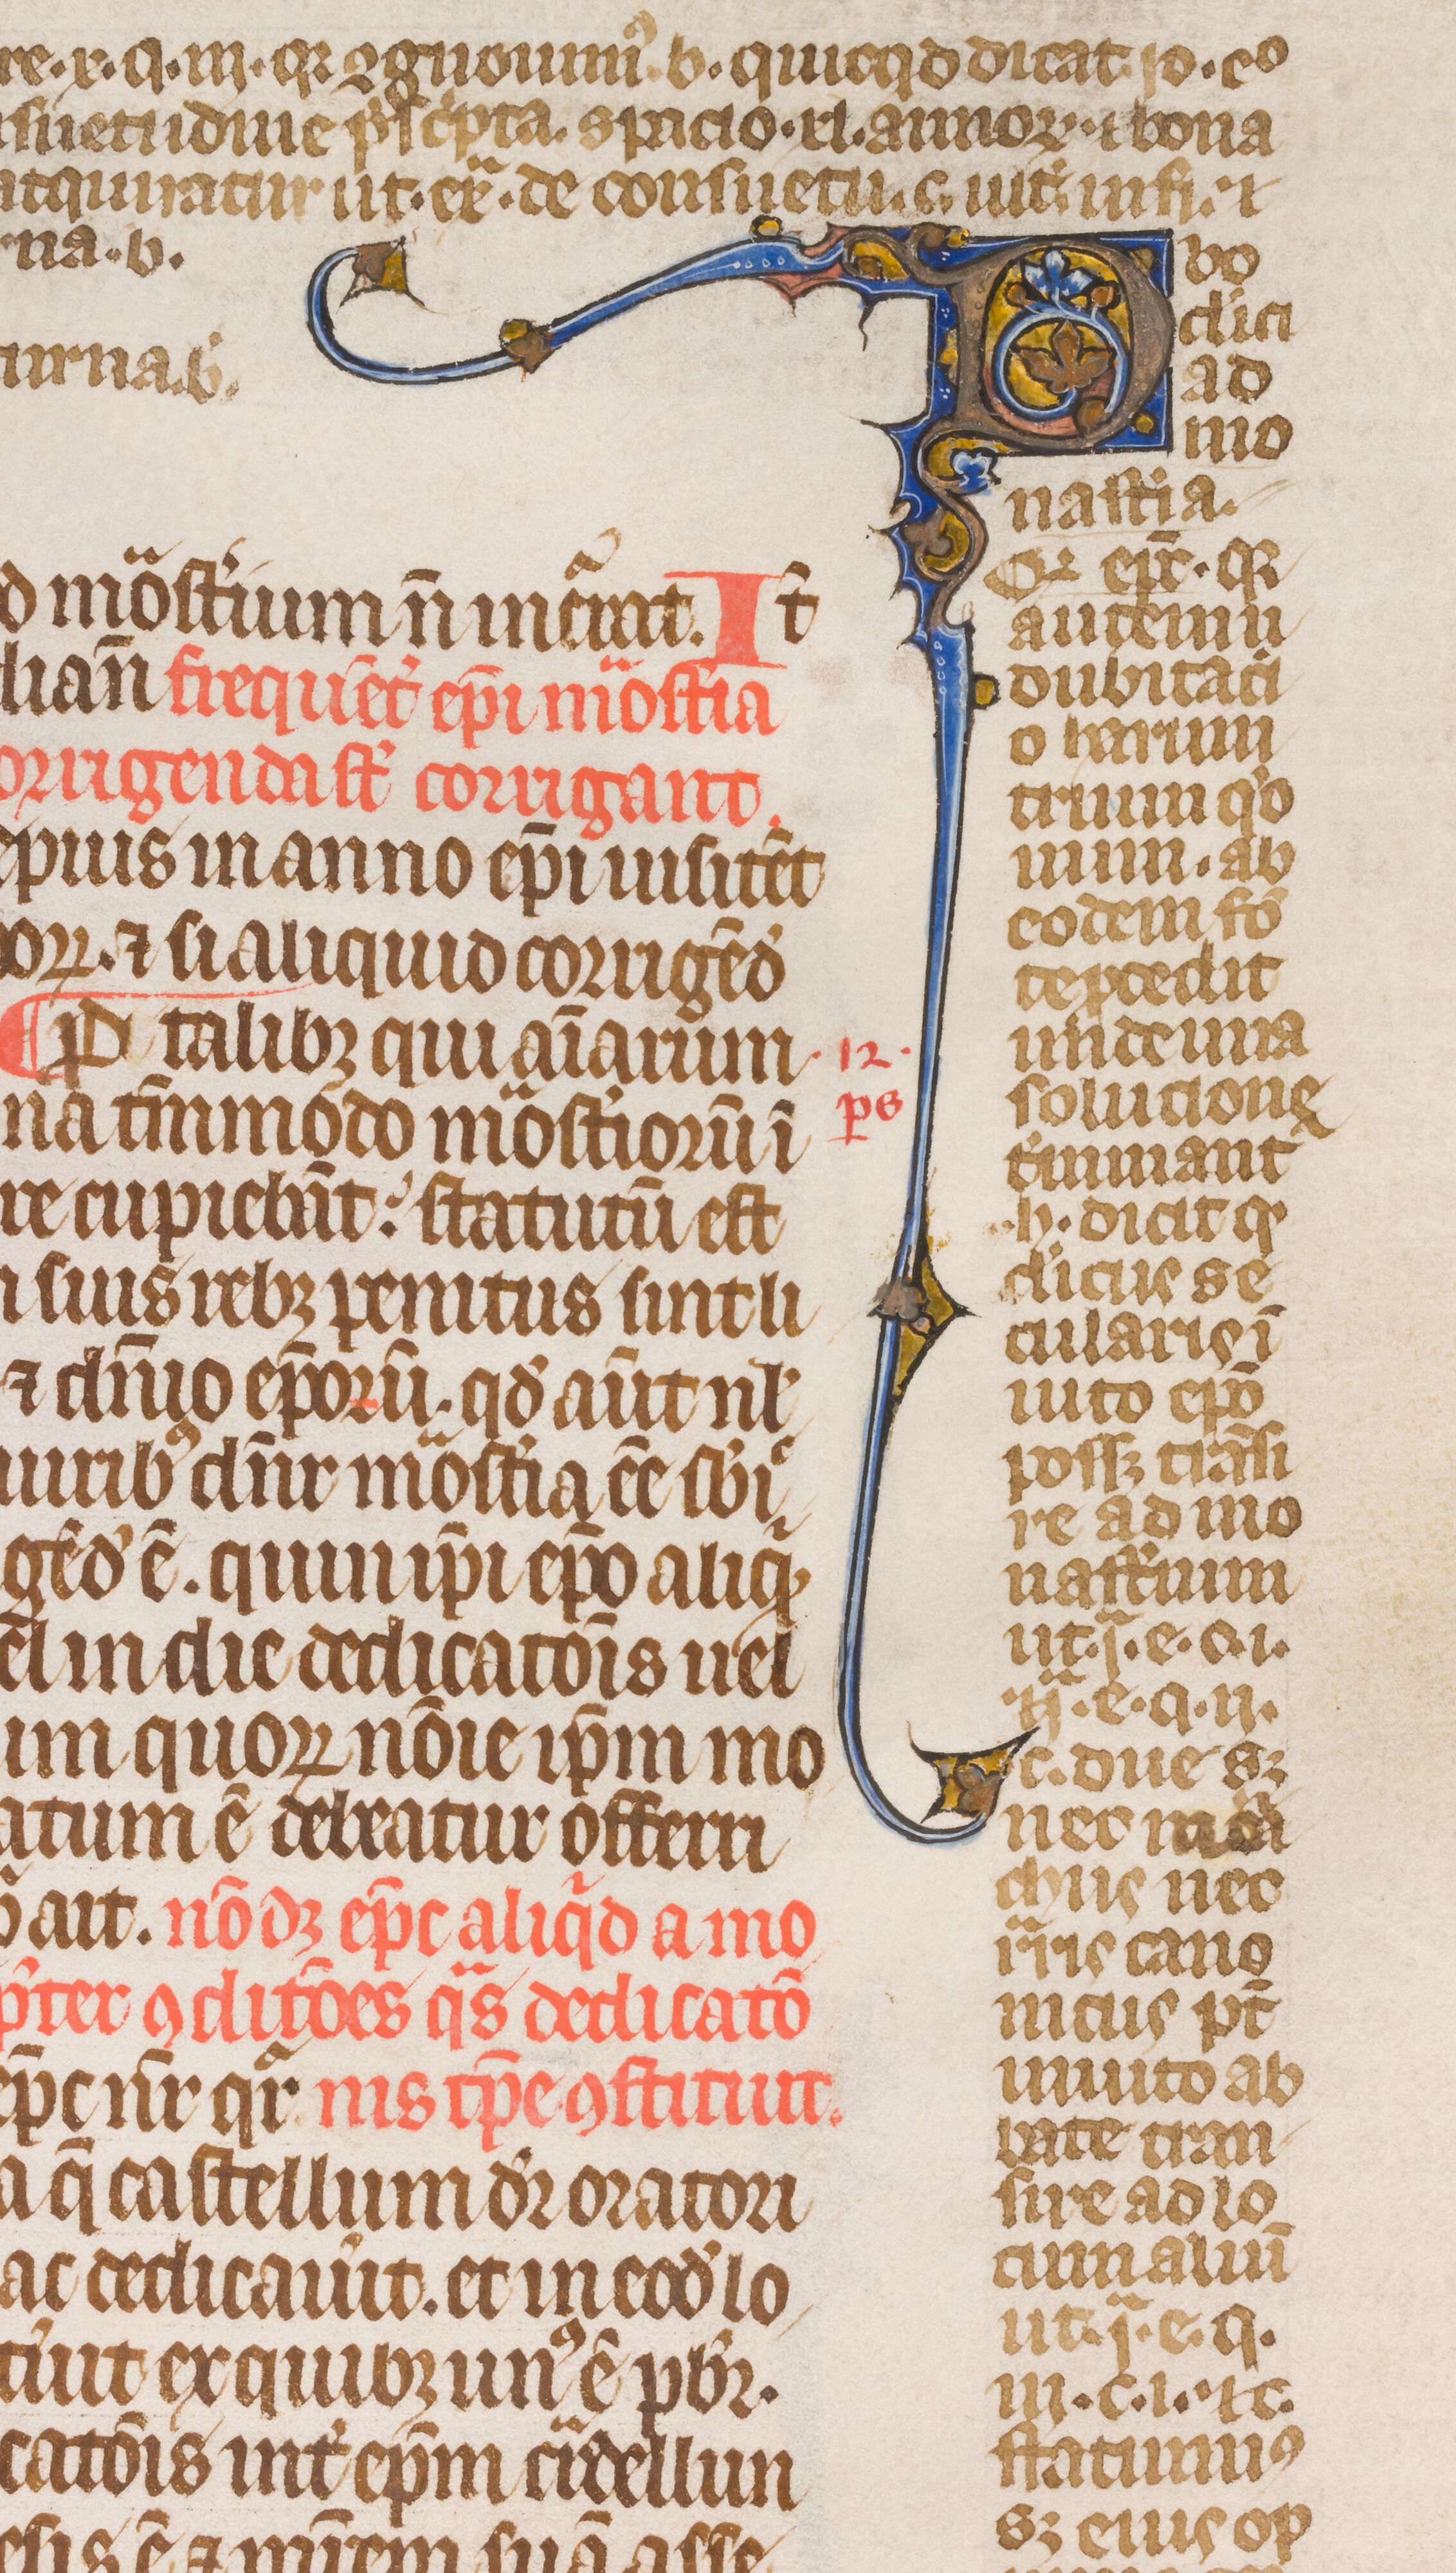 re.x.q.iii.qr ꝯgnouimꝰ. b. quicqd dicat io. eo
nsuetudine p̄sc̄pta. spacio.xl.annoꝝ.⁊ bona
atquiratur ut.ex̄.de consuetu.c. ult̄. infi. ⁊
na.b.
urna.b.
d mo᷒ast̄ium n̄ mc̄iat. It̄
dian̄ frequēt̄ ep̄i mo᷒ast̄ia
orrigenda st̄ corrigant.
epius in anno ep̄i uisitēt
oꝝ. ⁊ si aliquid corrigēd̄
talibꝫ qui aīarum
na tm̄modo mo᷒ast̄iorū ī
re cupiebāt: statutū est
suis rebꝫ penitus sint li
⁊ dn̄io ep̄orū. qd̄ aūt nl̄
uiribꝰ dn̄r mo᷒ast̄ia ēe s̄bi
gēd̄ ē. quin ip̄i ep̄o aliq
el in die dedicatōis uel
um quoꝝ nōie ip̄m mo
atum ē debeatur offerri
ait. nō dꝫ ep̄c aliq̄d a mo
p̄ter ꝯditōes q̄s dedicatō
ep̄c nr̄ qr̄ nis tp̄e ꝯstituit.
a q̄ castellum dr̄ oratori
ac dedicauit. et in eod̄ lo
tiut ex quibꝫ unꝰ ē pb̄r.
catōis int̄ ep̄m c̄idellun
12.
ps
bo
clici
ad
mo
nast̄ia.
Qr ep̄c. qr
autem ii
dubitaci
o harum
trium qō
num. ab
eodem fō
te p̄cedit
unde una
solucione
t̄minant̄
.h. dicit q
cl̄icus se
cularis ī
uito ep̄o
possꝫ trāsi
re ad mo
nast̄ium
ut.j̄.e.c.i.
⁊j̄.e.q.ii.
c. due sꝫ
nec mōa
chus nec
rīris cano
nicus pt̄
inuito ab
bate tran
sire ad lo
cum aliū
ut.j̄.e.q.
iii.c.i.⁊ c.
statuimꝰ
sꝫ eius op